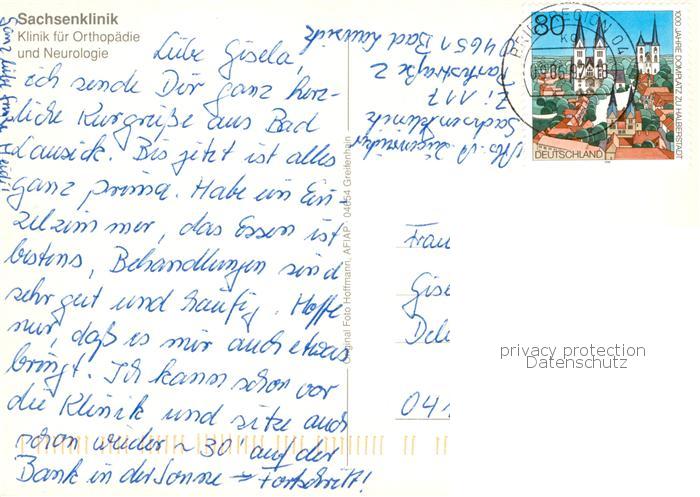 Sachsenklinik
Klinik für Orthopädie
und Neurologie
Liebe Gisela,
ich sende Dir ganz herz-
liche Kurgrüße aus Bad
Lausick. Bis jetzt ist alles
ganz prima. Habe ein Ein-
zelzimmer, das Essen ist
bestens, Behandlungen sind
sehr gut und häufig. Hoffe
nur, daß es mir auch etwas
bringt. Ich kann schon vor
die Klinik und sitze auch
schon wieder ~ 30' auf der
Bank in der Sonne → Fortschritt!
Ganz liebe Grüße Heidi!
Original Foto Hoffmann, AFIAP · 04654 Greifenhain
Sachsenklinik
Zi 117
Parkstraße 2
04651 Bad Lausick
80
1000 JAHRE DOMPLATZ ZU HALBERSTADT
DEUTSCHLAND
BRIEFREGION 04
Frau
Gise
041
privacy protection
Datenschutz